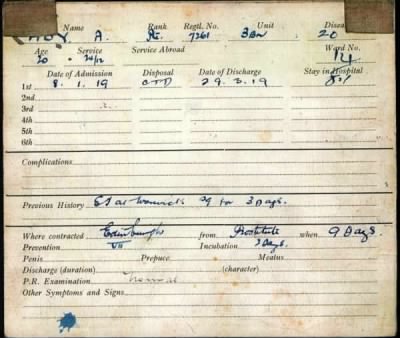 Name Rank Regtl. No. Unit Disea
A. Pte. 7261 3 Bn 20
Age Service Service Abroad Ward No.
20 14
Date of Admission Disposal Date of Discharge Stay in Hospital
1st 8.1.19 CTD 29.3.19
2nd
3rd
4th
5th
6th
Complications
Previous History at for 3 Days.
Where contracted Edinburgh from Prostitute when 9 Days.
Prevention Nil Incubation 3 Days.
Penis Prepuce Meatus
Discharge (duration) (character)
P.R. Examination Normal
Other Symptoms and Signs